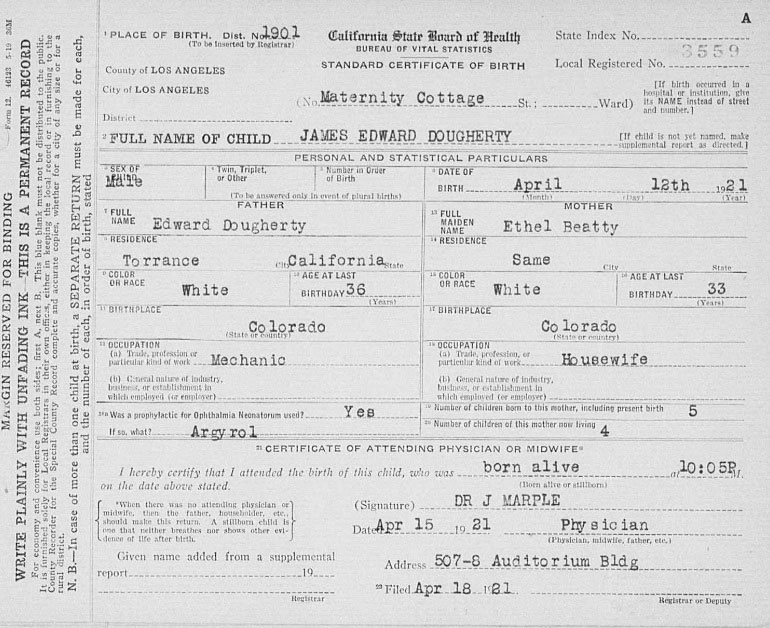 A
MARGIN RESERVED FOR BINDING
Form 12. 46123 5-19 36M
WRITE PLAINLY WITH UNFADING INK—THIS IS A PERMANENT RECORD
For economy and convenience use both sides; first A, next B. This blue blank must not be distributed to the public.
It is furnished solely for Local Registrars in their own offices, either in keeping the local record or in furnishing to the
County Recorder for the Special County Record complete and accurate copies, whether for a city of any size or for a
rural district.
N. B.—In case of more than one child at birth, a SEPARATE RETURN must be made for each,
and the number of each, in order of birth, stated
1 PLACE OF BIRTH. Dist. No. 1901
(To be inserted by Registrar)
California State Board of Health
BUREAU OF VITAL STATISTICS
STANDARD CERTIFICATE OF BIRTH
State Index No.
Local Registered No. 3559
County of LOS ANGELES
City of LOS ANGELES
(No. Maternity Cottage St.; Ward)
[If birth occurred in a
hospital or institution, give
its NAME instead of street
and number.]
District
2 FULL NAME OF CHILD JAMES EDWARD DOUGHERTY
[If child is not yet named, make
supplemental report as directed.]
PERSONAL AND STATISTICAL PARTICULARS
3 SEX OF CHILD Male
4 Twin, Triplet, or Other
5 Number in Order of Birth
(To be answered only in event of plural births)
6 DATE OF BIRTH April 12th 1921
(Month) (Day) (Year)
FATHER
MOTHER
7 FULL NAME Edward Dougherty
13 FULL MAIDEN NAME Ethel Beatty
8 RESIDENCE
Torrance City California State
14 RESIDENCE
Same City State
9 COLOR OR RACE White
10 AGE AT LAST BIRTHDAY 36
(Years)
15 COLOR OR RACE White
16 AGE AT LAST BIRTHDAY 33
(Years)
11 BIRTHPLACE
Colorado
(State or country)
17 BIRTHPLACE
Colorado
(State or country)
12 OCCUPATION
(a) Trade, profession or
particular kind of work Mechanic
(b) General nature of industry,
business, or establishment in
which employed (or employer)
18 OCCUPATION
(a) Trade, profession, or
particular kind of work Housewife
(b) General nature of industry,
business, or establishment in
which employed (or employer)
Was a prophylactic for Ophthalmia Neonatorum used? Yes
If so, what? Argyrol
19 Number of children born to this mother, including present birth 5
20 Number of children of this mother now living 4
21 CERTIFICATE OF ATTENDING PHYSICIAN OR MIDWIFE*
I hereby certify that I attended the birth of this child, who was born alive at 10:05P M
on the date above stated.
(Born alive or stillborn)
*When there was no attending physician or
midwife, then the father, householder, etc.,
should make this return. A stillborn child is
one that neither breathes nor shows other evi-
dence of life after birth.
(Signature) DR J MARPLE
Dated Apr 15 1921 Physician
(Physician, midwife, father, etc.)
Given name added from a supplemental
report 19
Registrar
Address 507-8 Auditorium Bldg
22 Filed Apr 18 1921
Registrar or Deputy